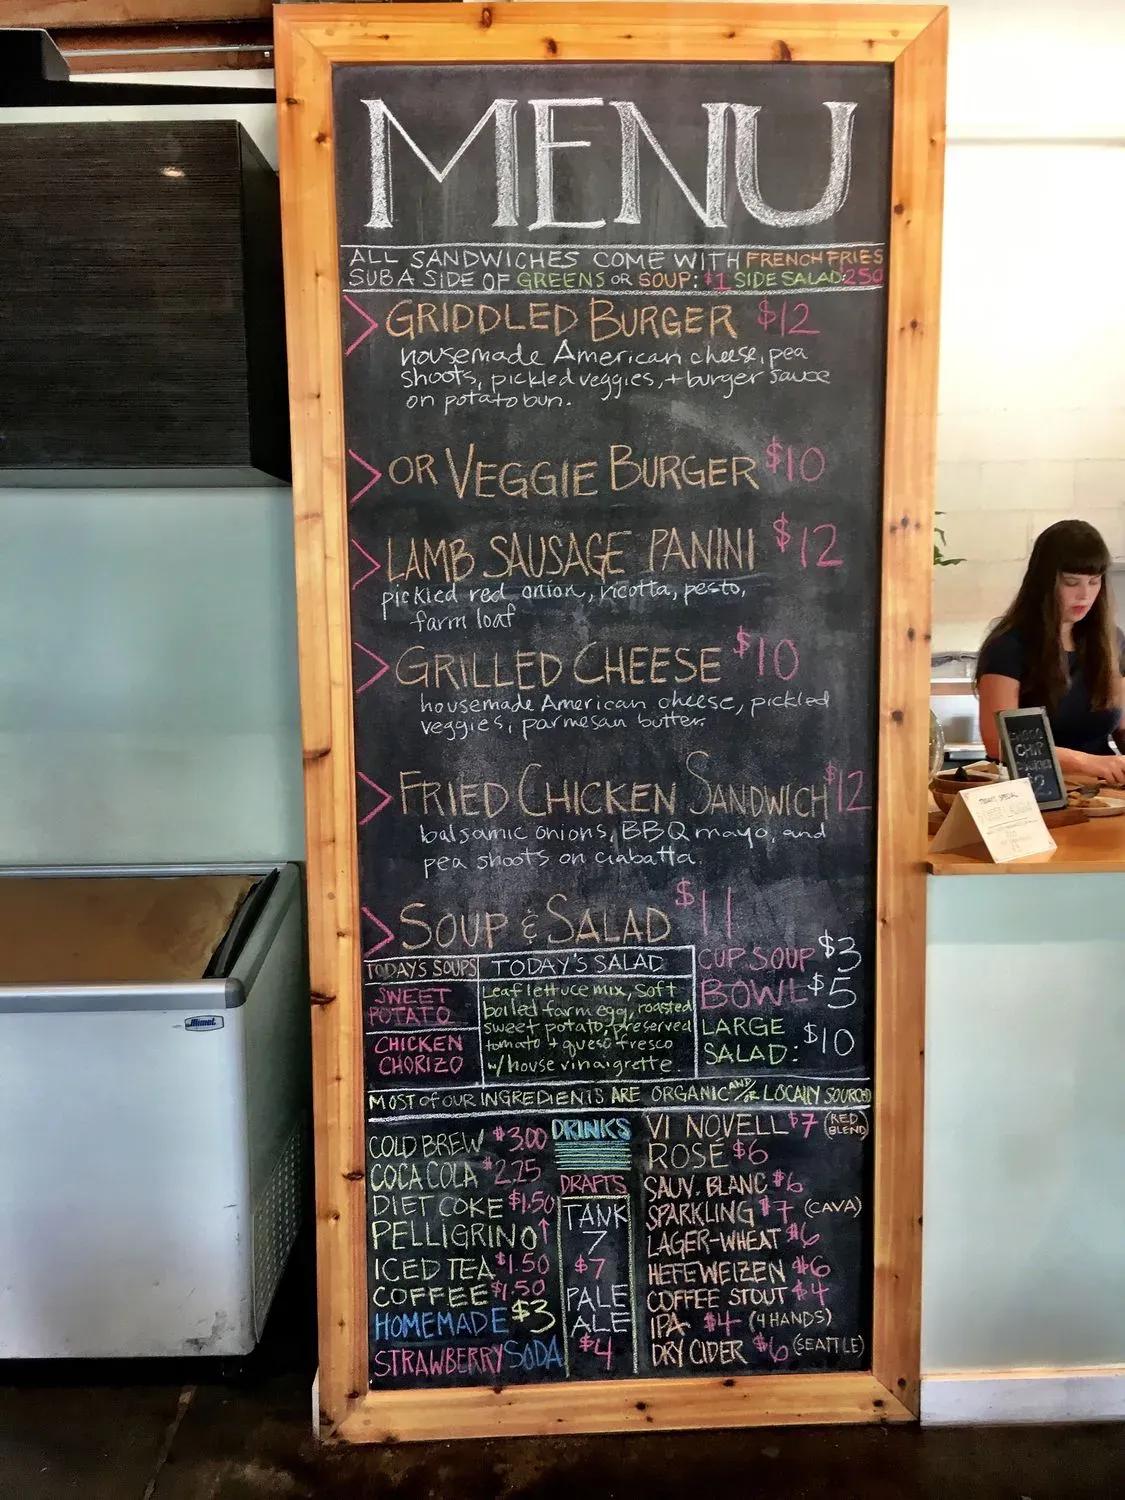 MENU
ALL SANDWICHES COME WITH FRENCH FRIES
SUB A SIDE OF GREENS OR SOUP: $1 SIDE SALAD: 250
GRIDDLED BURGER $12
housemade American cheese, pea
shoots, pickled veggies, + burger sauce
on potato bun.
OR VEGGIE BURGER $10
LAMB SAUSAGE PANINI $12
pickled red onion, ricotta, pesto,
farm loaf
GRILLED CHEESE $10
housemade American cheese, pickled
veggies, parmesan butter.
FRIED CHICKEN SANDWICH $12
balsamic onions, BBQ mayo, and
pea shoots on ciabatta.
SOUP & SALAD $11
TODAY'S SOUPS
SWEET
POTATO
CHICKEN
CHORIZO
TODAY'S SALAD
Leaf lettuce mix, soft
boiled farm egg, roasted
sweet potato, preserved
tomato + queso fresco
w/ house vinaigrette.
CUP SOUP $3
BOWL $5
LARGE
SALAD: $10
MOST OF OUR INGREDIENTS ARE ORGANIC AND/OR LOCALLY SOURCED
COLD BREW $3.00
COCA COLA $2.25
DIET COKE $1.50
PELLIGRINO ↑
ICED TEA $1.50
COFFEE $1.50
HOMEMADE $3
STRAWBERRY SODA
DRINKS
DRAFTS
TANK
7
$7
PALE
ALE
$4
VI NOVELL $7 (RED BLEND)
ROSÉ $6
SAUV. BLANC $6
SPARKLING $7 (CAVA)
LAGER-WHEAT $6
HEFEWEIZEN $6
COFFEE STOUT $4
IPA $4 (4 HANDS)
DRY CIDER $6 (SEATTLE)
Mimet
CHIP
TODAY'S SPECIAL